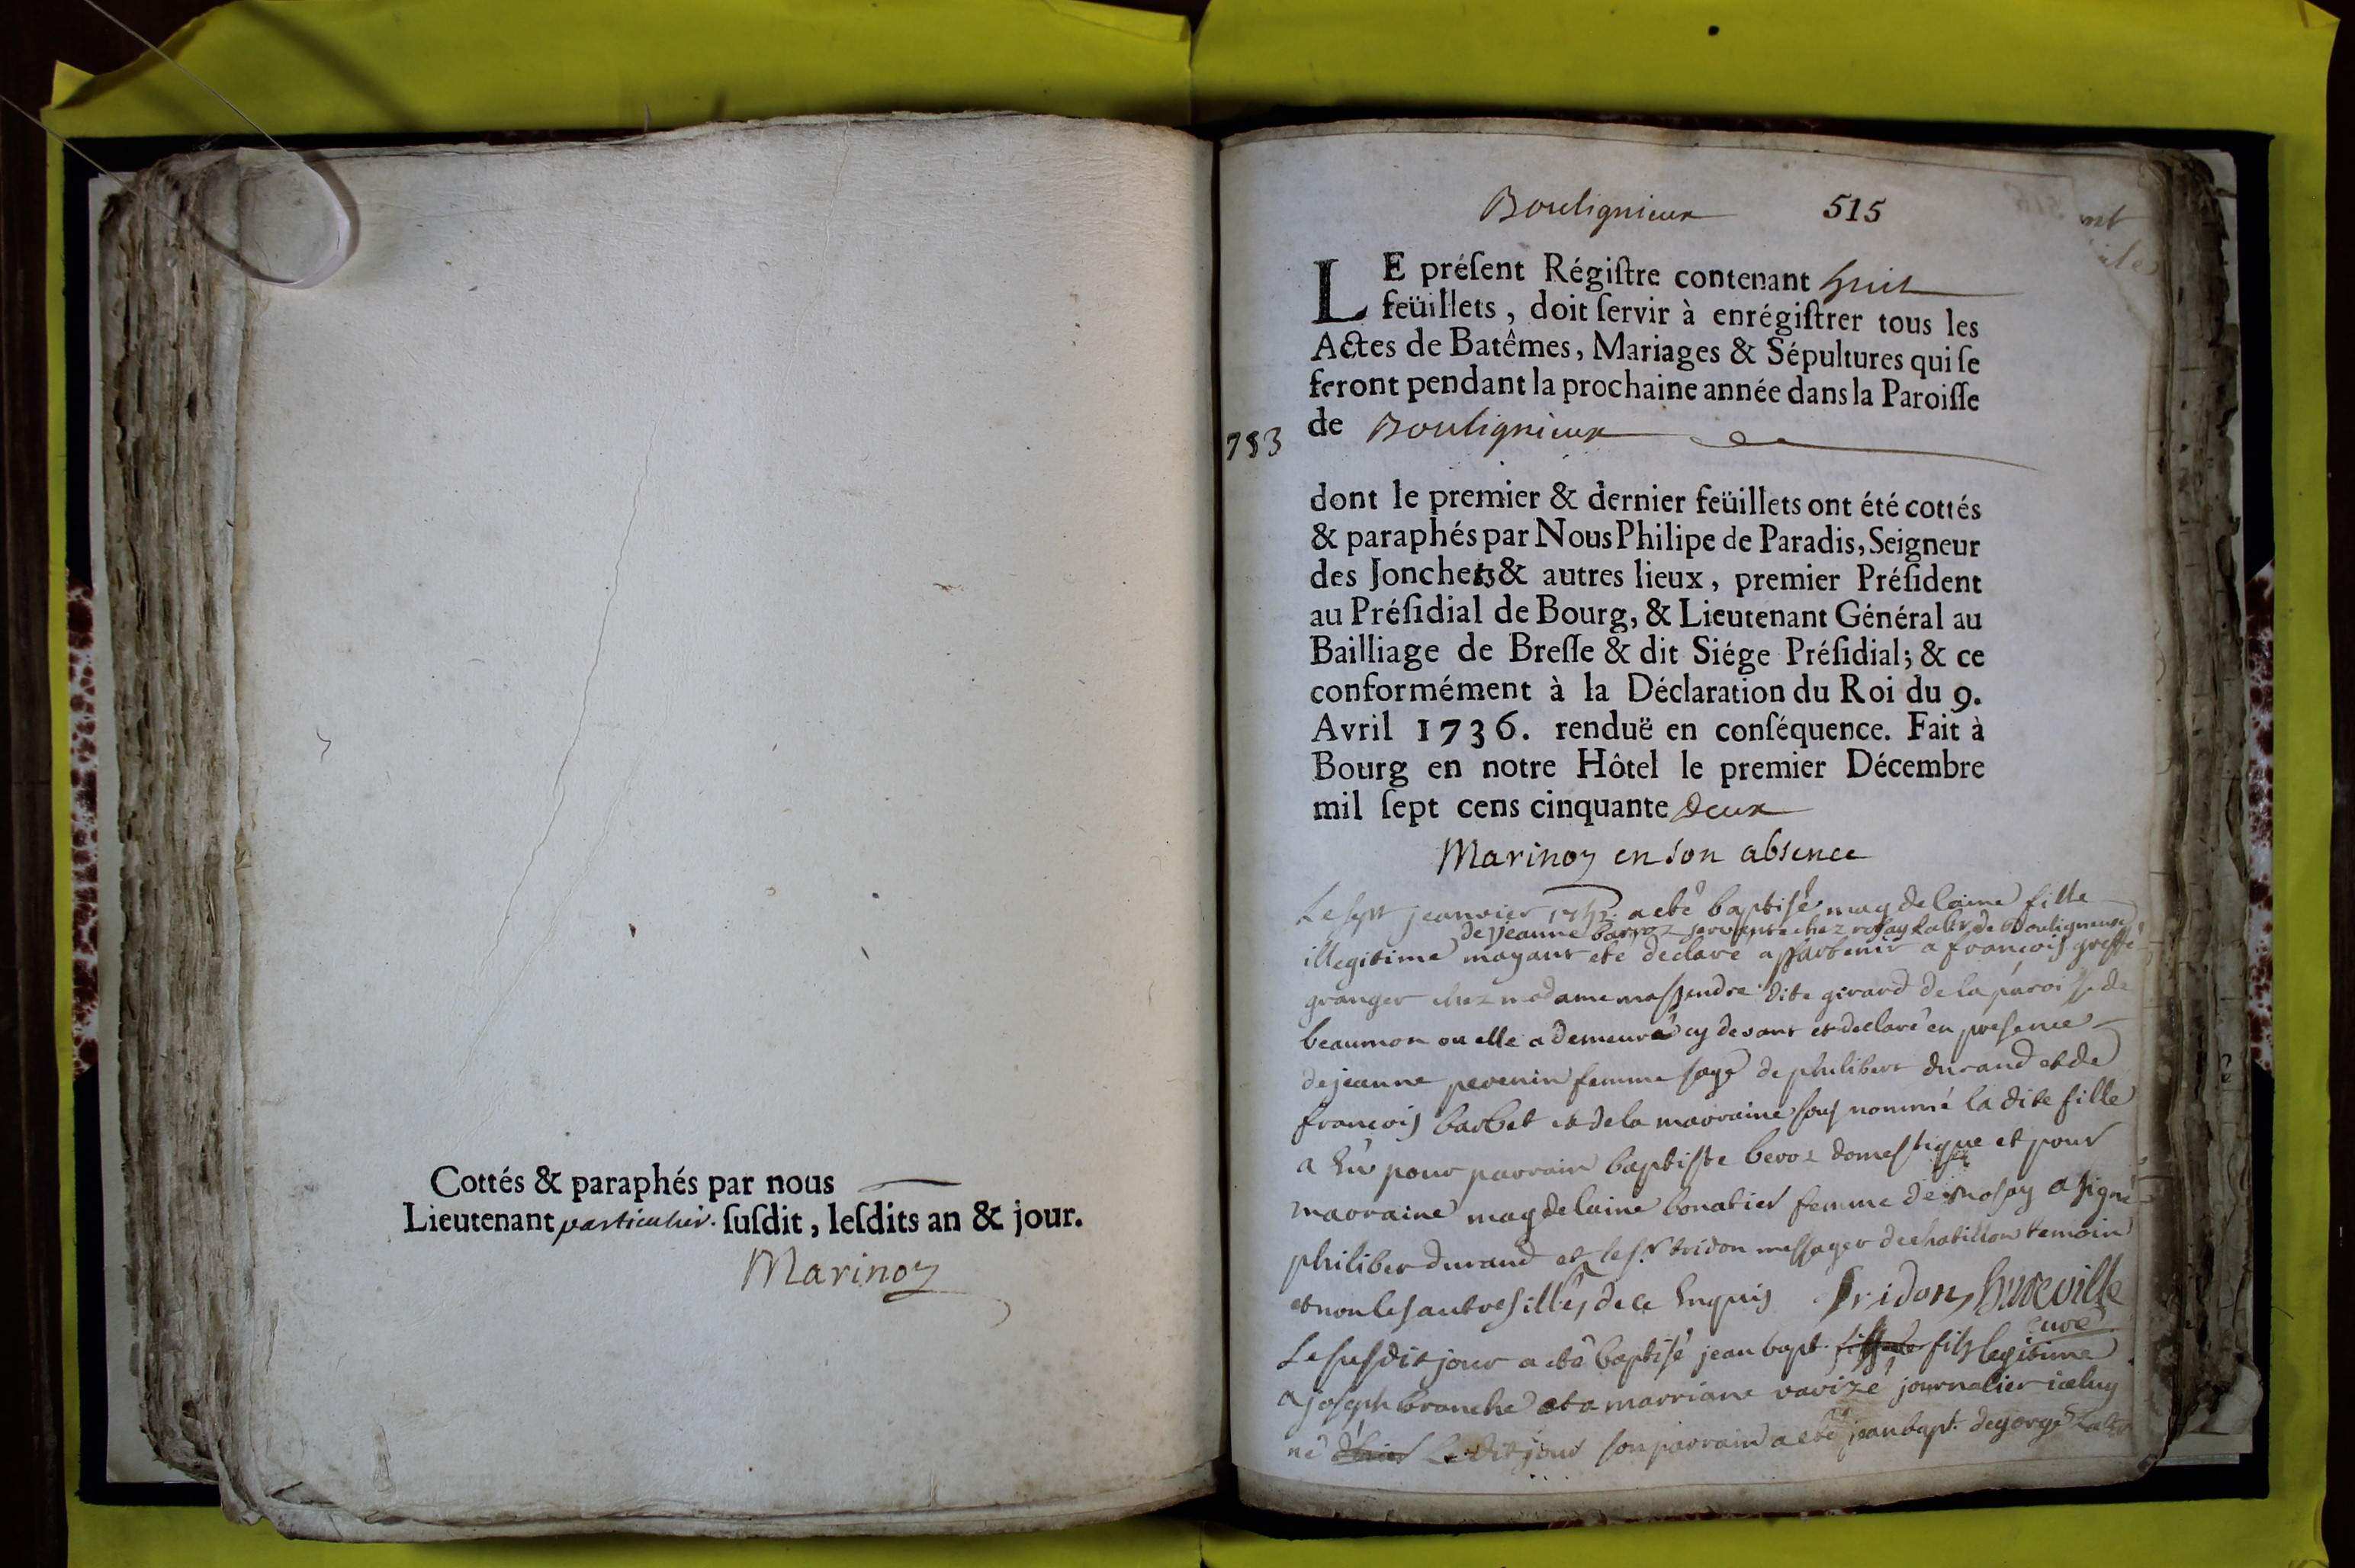 Cottés & paraphés par nous
Lieutenant particulier. ſuſdit, leſdits an & jour.
Marinoz
Boulignieux 515
LE préſent Régiſtre contenant huit
feüillets, doit ſervir à enrégiſtrer tous les
Actes de Batêmes, Mariages & Sépultures qui ſe
feront pendant la prochaine année dans la Paroiſſe
de Boulignieux
753
dont le premier & dernier feüillets ont été cottés
& paraphés par Nous Philipe de Paradis, Seigneur
des Jonchets & autres lieux, premier Préſident
au Préſidial de Bourg, & Lieutenant Général au
Bailliage de Breſſe & dit Siége Préſidial; & ce
conformément à la Déclaration du Roi du 9.
Avril 1736. renduë en conſéquence. Fait à
Bourg en notre Hôtel le premier Décembre
mil ſept cens cinquante deux
Marinoz en son absence
Le sept jeanvier a eté baptisé magdelaine fille
de jeanne servante chez de Boulignieux
illegitime mayant eté declaré appartenir a francois greffe
granger chez madame dite girard de la paroisse de
beaumon ou elle a demeuré cy devant et declaré en presence
de jeanne femme sage de philibert durand et de
francois barbet et de la marraine sous nommé la dite fille
a eu pour parrain baptiste beroz domestique et pour
marraine magdelaine bonatier femme de a signé
philiber durand et le sr tridon messager de chatillon temoin
et non les autres illés de ce enquis Tridon hureville
curé
Le susdit jour a eté baptisé jean bapt. fils legitime
a joseph branche et a marriane varizé journalier iceluy
né le dit jour son parrain a eté jean bapt. degorge